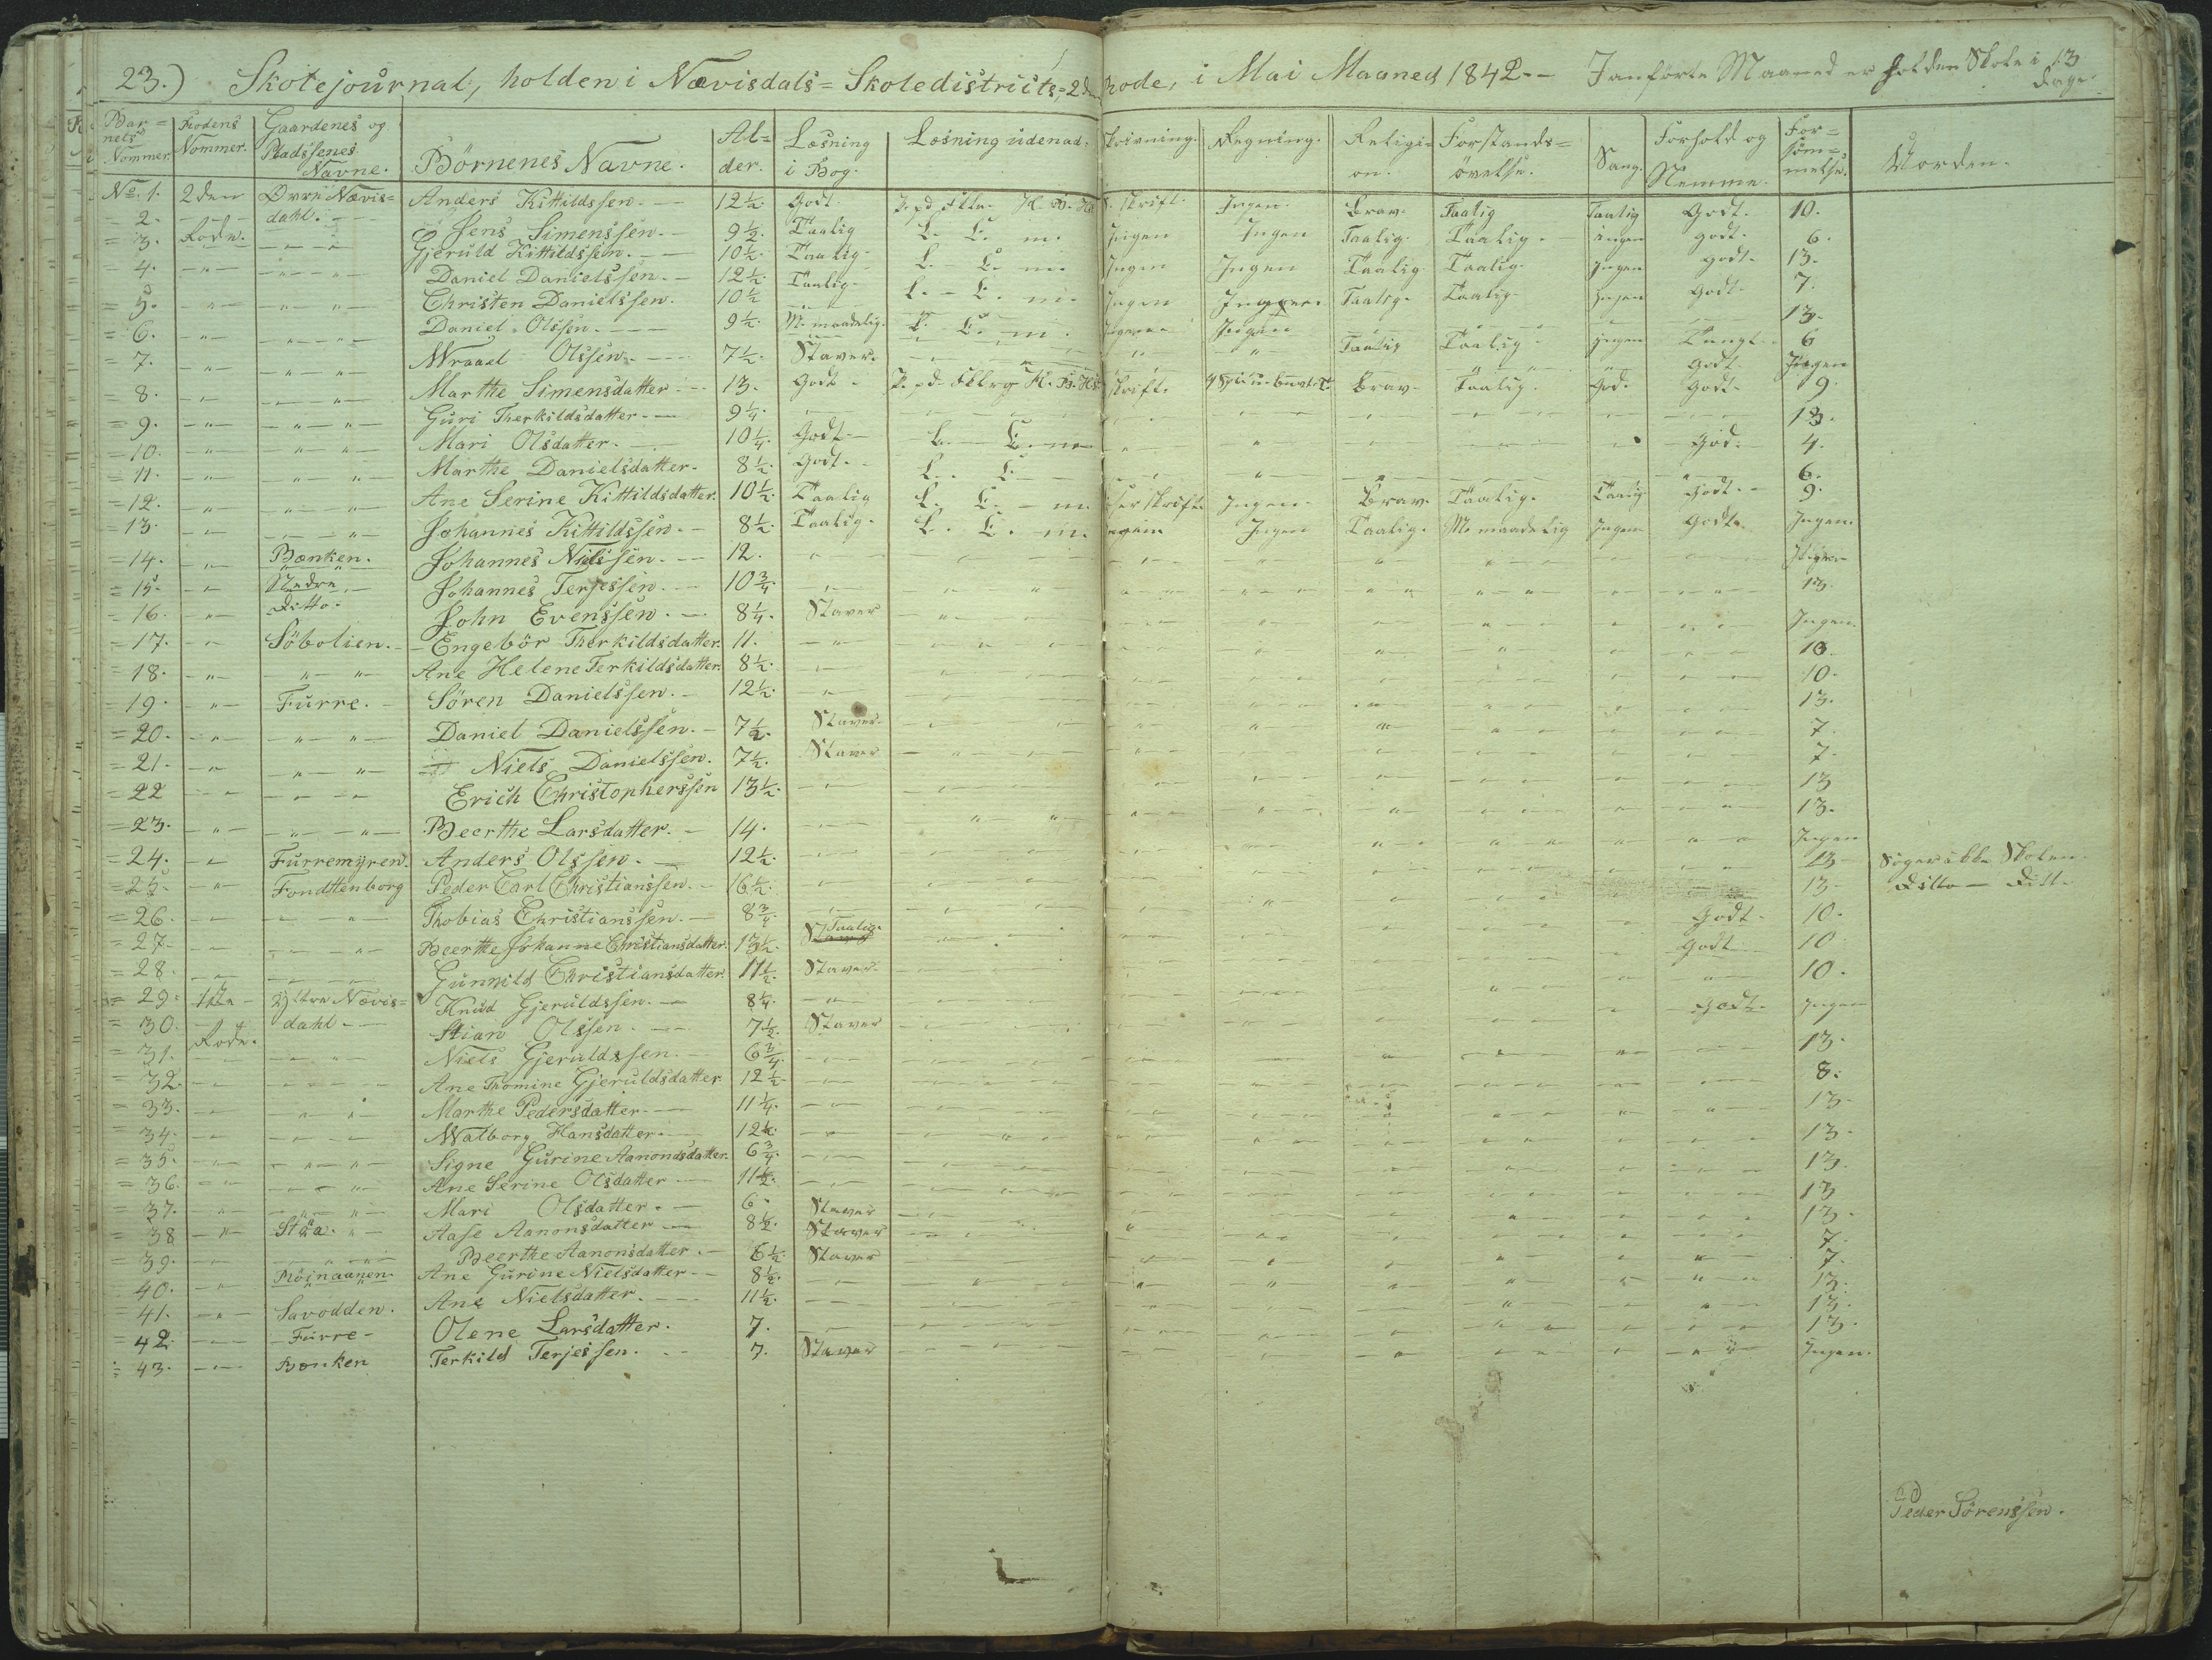 23.) Skolejournal, holden i Nævisdals=Skoledistricts, 2den Rode, i Mai Maaned 1842.-- Ianførte Maaned er holden Skole i 13 Dage.
Bar=nets Nommer. Rodens Nommer. Gaardenes og Pladssenes Navne. Börnenes Navne. Al=der. Læsning i Bog. Læsning udenad. Skrivning. Regning. Religi=on. Forstands=övelse. Sang. Forhold og Nemme. For=söm=melse.
No. 1. 2den Øvre Nævis= Anders Kittildssen. 12½. Godt Skrift. Ingen. Brav. Taalig Taalig Godt. 10.
= 2. Rode. dahl. Jens Simenssen. 9½. Taalig L. L. m. Ingen Ingen Taalig. Taalig. Ingen godt. 6.
= 3. Gjeruld Kittildssen. 10½. Taalig. L. L. m. Ingen Ingen Taalig Taalig. Ingen godt. 13.
= 4. Daniel Danielssen. 12½. Taalig. L. L. m. Ingen Ingen. Taalig. Taalig. Ingen Godt. 7.
= 5. Christen Danielssen. 10½ 13.
= 6. Daniel Olssen. 9½. M. maadelig. L. L. m. Ingen Ingen Taalig Taalig. Ingen Tungt. 6
= 7. Wraael Olssen. 7½. Staver. Godt. Ingen
= 8. Marthe Simensdatter 13. Godt. Skrift. Brav. Taalig. God. Godt. 9.
= 9. Guri Therkildsdatter 9¼. 13.
= 10. Mari Olsdatter. 10¼. Godt L. L. m God. 4.
= 11. Marthe Danielsdatter. 8½. Godt. L. L. 6.
= 12. Ane Serine Kittildsdatter. 10½. Taalig L. L. m. Ingen. Brav. Taalig. Taalig. Godt. 9.
= 13. Johannes Kittildssen. 8½. Taalig. L. L. m. Ingen Taalig. M. maadelig Ingen Godt. Ingen.
= 14. Bænken. Johannes Nilssen. 12. Ingen
= 15. Nedre Johannes Terjessen. 10¾. 13.
= 16. Ditto. John Evenssen. 8¼. Staver Ingen.
= 17. Söbolien. Engebör Therkildsdatter. 11. 10.
= 18. Ane Helene Terkildsdatter. 8½. 10.
= 19. Furre. Sören Danielssen. 12½. 13.
= 20. Daniel Danielssen. 7½. Staver. 7.
= 21. Niels Danielssen. 7½. Staver 7.
= 22 Erich Christopherssen 13½. 13
= 23. Beerthe Larsdatter. 14. 13.
= 24. Furremyren. Anders Olssen. 12½. Ingen
= 25. Fondttenborg Peder Carl Christianssen. 16½. 13 Søger ikke Skolen.
= 26. Thobias Christianssen. 8¾. 13. Ditto Ditto
= 27. Beerthe Johanne Christiansdatter. 13½. Taalig. Godt 10.
= 28. Gunnild Christiansdatter. 11½. Staver. Godt 10
= 29. 1ste Yttre Nævis= Knud Gjeruldssen. 8¼. 10.
= 30. Rode. dahl. Stian Olssen. 7½. Staver Godt. Ingen
= 31. Niels Gjeruldssen. 6¾. 13.
= 32. Ane Thomine Gjeruldsdatter. 12½. 8.
= 33. Marthe Pedersdatter. 11¼. 13.
= 34. Walborg Hansdatter. 12¼. 13.
= 35. Signe Gurine Aanondsdatter. 6¾. 13.
= 36. Ane Serine Olsdatter 11½. 13
= 37. Mari Olsdatter. 6. Staver 13.
= 38 Stäa. Aase Aanonsdatter 8½. Staver 7.
= 39. Beerthe Aanonsdatter. 6½. Staver 7.
40. Möinaanen. Ane Gurine Nielsdatter 8½. 13.
= 41. Savodden. Ane Nielsdatter. 11½. 13.
= 42. Furre Olene Larsdatter. 7. 13.
= 43. Bænken Terkild Terjessen. 7. Staver Ingen.
Peder Sörenssen.